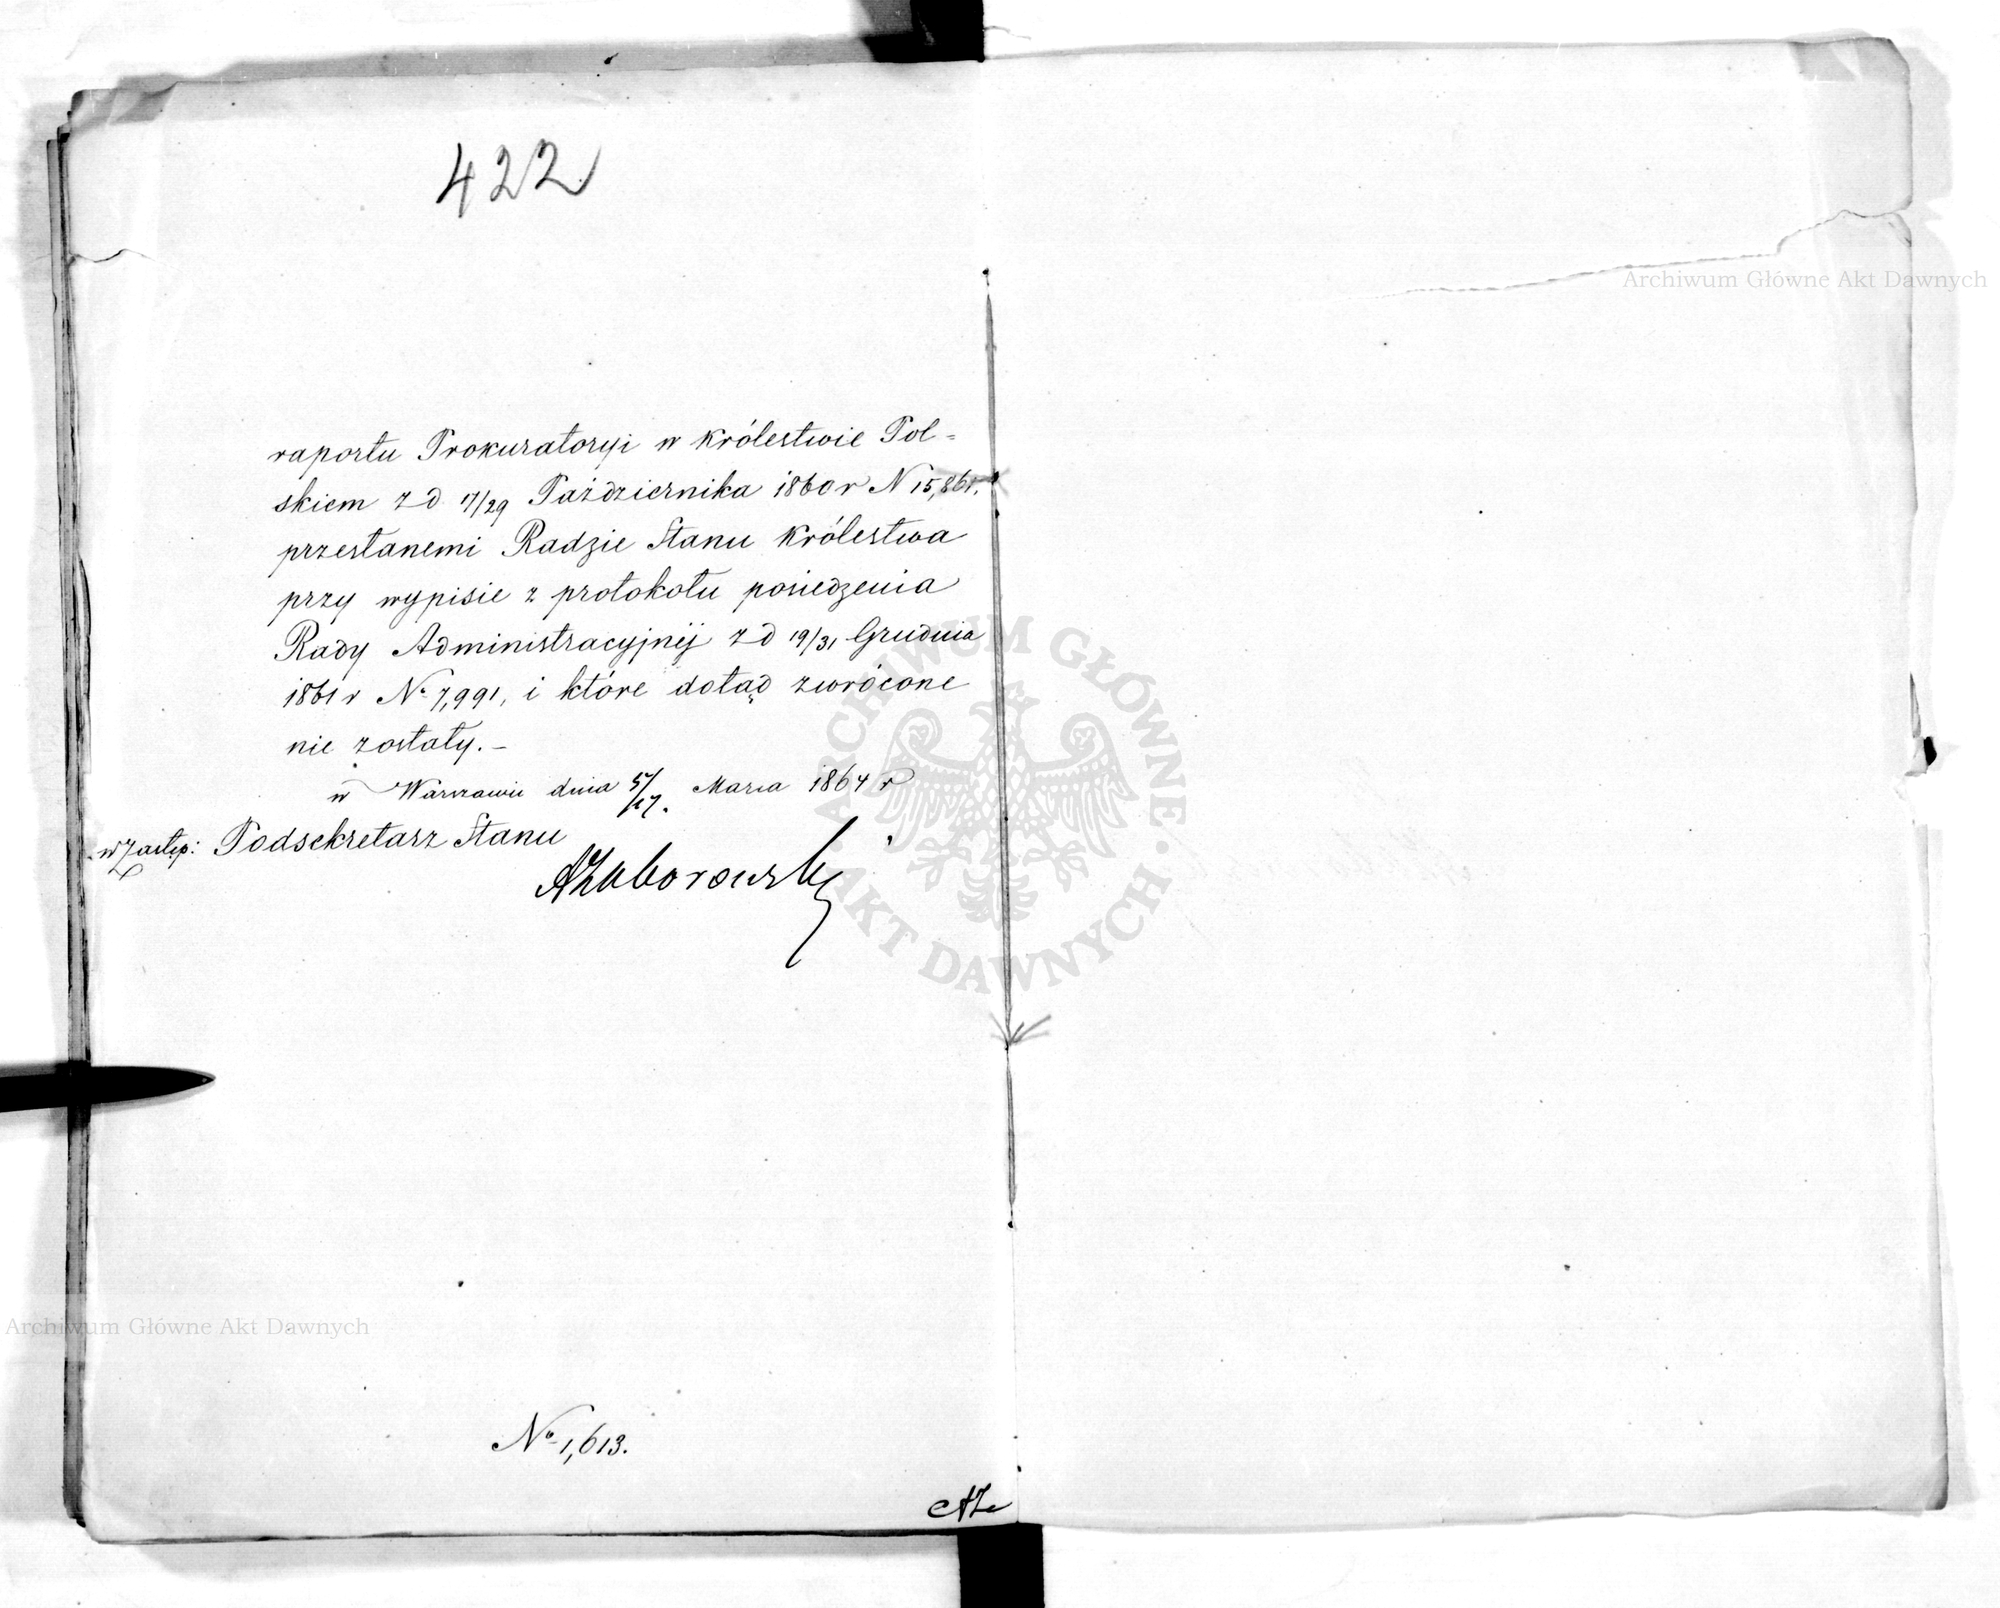 422
raportu Prokuratoryi w Królestwie Pol=
skiem z d. 17/29 Października 1860 r N 15,861,
przesłanemi Radzie Stanu Królestwa
przy wypisie z protokołu posiedzenia
Rady Administracyjnéj z d 19/31 Grudnia
1861 r No 7,991, i które dotąd zwrócone
nie zostały.–
w Warszawie dnia 5/17. Marca 1864 r
w Zastęp: Podsekretarz Stanu
AZaborowski
No 1,613.
AZ
Archiwum Główne Akt Dawnych
Archiwum Główne Akt Dawnych
ARCHIWUM GŁÓWNE • AKT DAWNYCH •